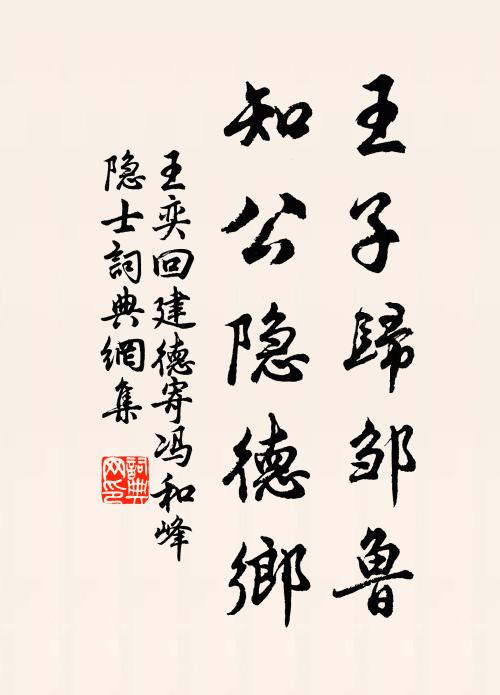 王子歸邹魯
知公隐德鄉
王奕回建德寄冯和峰
隐士詞典網集
詞典网印